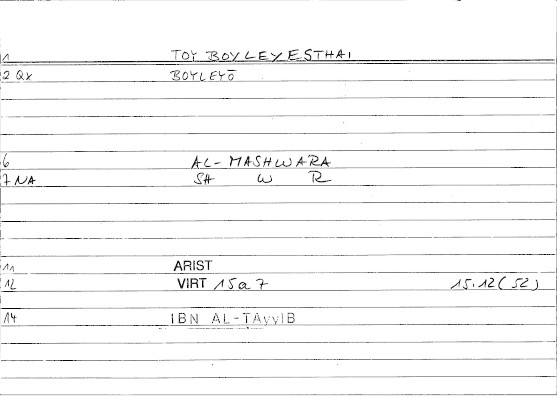 1 TOY BOYLEYESTHAI
2 QX BOYLEYŌ
6 AL-MASHWARA
7 NA SH W R
11 ARIST
12 VIRT 15a7 15.12(52)
14 IBN AL-TAyyIB